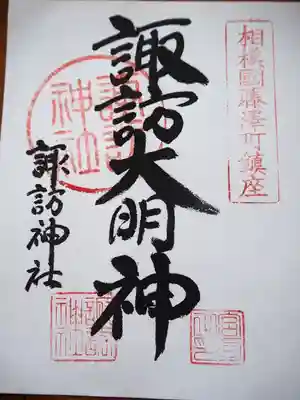 相模國藤澤町鎮座
諏訪大明神
諏訪神社
諏訪神社
諏訪神社